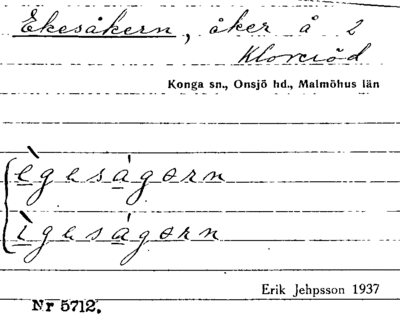 Ekesåkern, åker å 2
Kloveröd
Konga sn., Onsjö hd., Malmöhus län
ègesågərn
ìgesågərn
Erik Jehpsson 1937
Nr 5712.